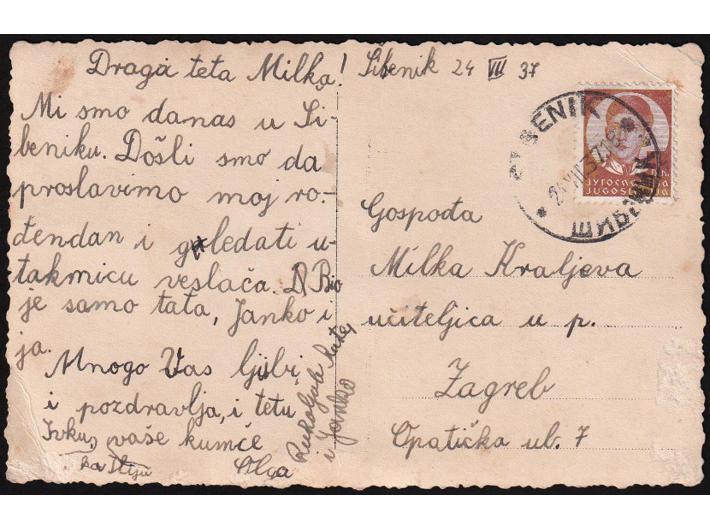 Draga teta Milka!
Šibenik 24 VII 37
Mi smo danas u Ši-
beniku. Došli smo da
proslavimo moj ro-
đendan i gledati u-
takmicu veslača. Bio
je samo tata, Janko i
ja.
Mnogo Vas ljubi
i pozdravlja, i tetu
Ivku, vaše kumče
Olga
i Janko
ŠIBENIK
ШИБЕНИК
ЈУГОСЛАВИЈА
JUGOSLAVIJA
Gospođa
Milka Kraljeva
učiteljica u p.
Zagreb
Opatička ul. 7